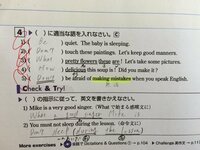 4 ( )に適当な語を入れなさい。 C
1) ( Be ) quiet. The baby is sleeping.
2) ( Don't ) touch these paintings. Let's keep good manners.
3) ( What ) pretty flowers these are! Let's take some pictures.
4) ( How ) delicious this soup is! Did you make it?
5) ( Don't ) be afraid of making mistakes when you speak English.
Check & Try!
( )の指示に従って、英文を書きかえなさい。
1) Mike is a very good singer. (What で始まる感嘆文に)
What a good singer Mike is
2) You must not sleep during the lesson. (命令文に)
Don't sleep (during the lesson)
More exercises